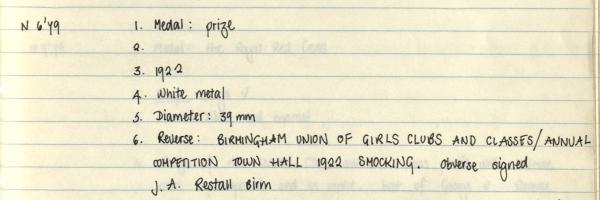 N 6'79 1. Medal: prize
2.
3. 1922
4. White metal
5. Diameter: 39 mm
6. Reverse: BIRMINGHAM UNION OF GIRLS CLUBS AND CLASSES/ANNUAL
COMPETITION TOWN HALL 1922 SMOCKING. obverse signed
J. A. Restall Birm